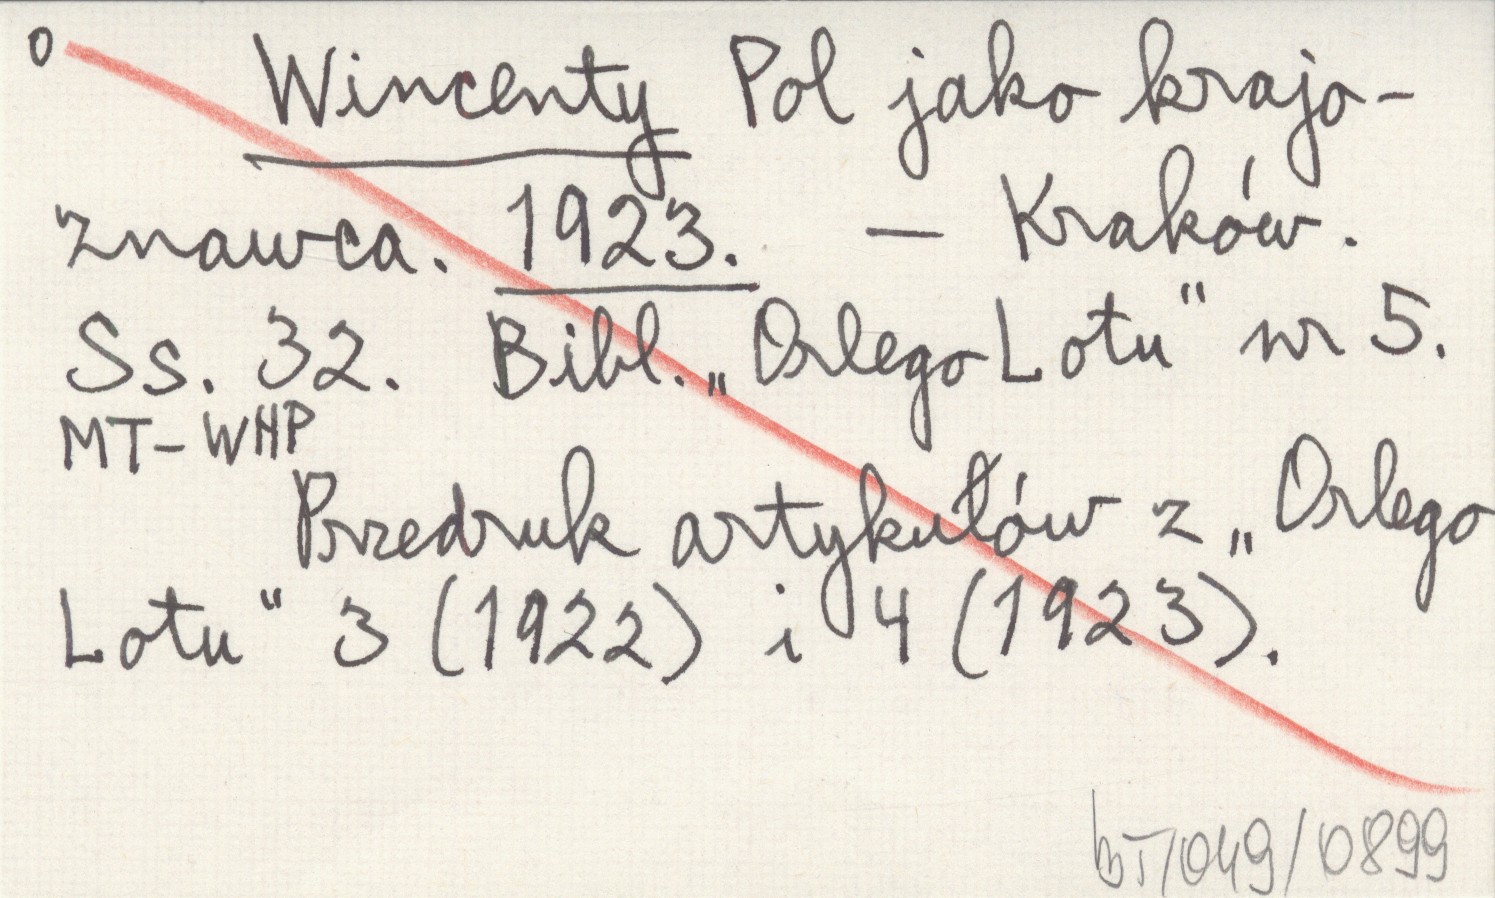 0 Wincenty Pol jako krajo-
znawca. 1923. — Kraków.
Ss. 32. Bibl. „Orlego Lotu" nr 5.
MT-WHP
Przedruk artykułów z „Orlego
Lotu" 3 (1922) i 4 (1923).
bT/049/0899